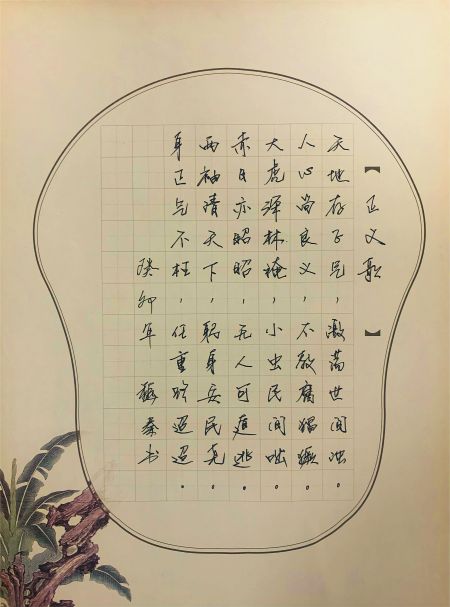 【正义歌】
天地存，激荡世间浊。
人心尚良义，不教腐猖獗。
大虎深林掩，小虫民间。
赤日亦昭昭，无人可遁逃。
两袖清天下，躬身安民尧。
身正气不枉，任重路迢迢。
癸卯年 秦书